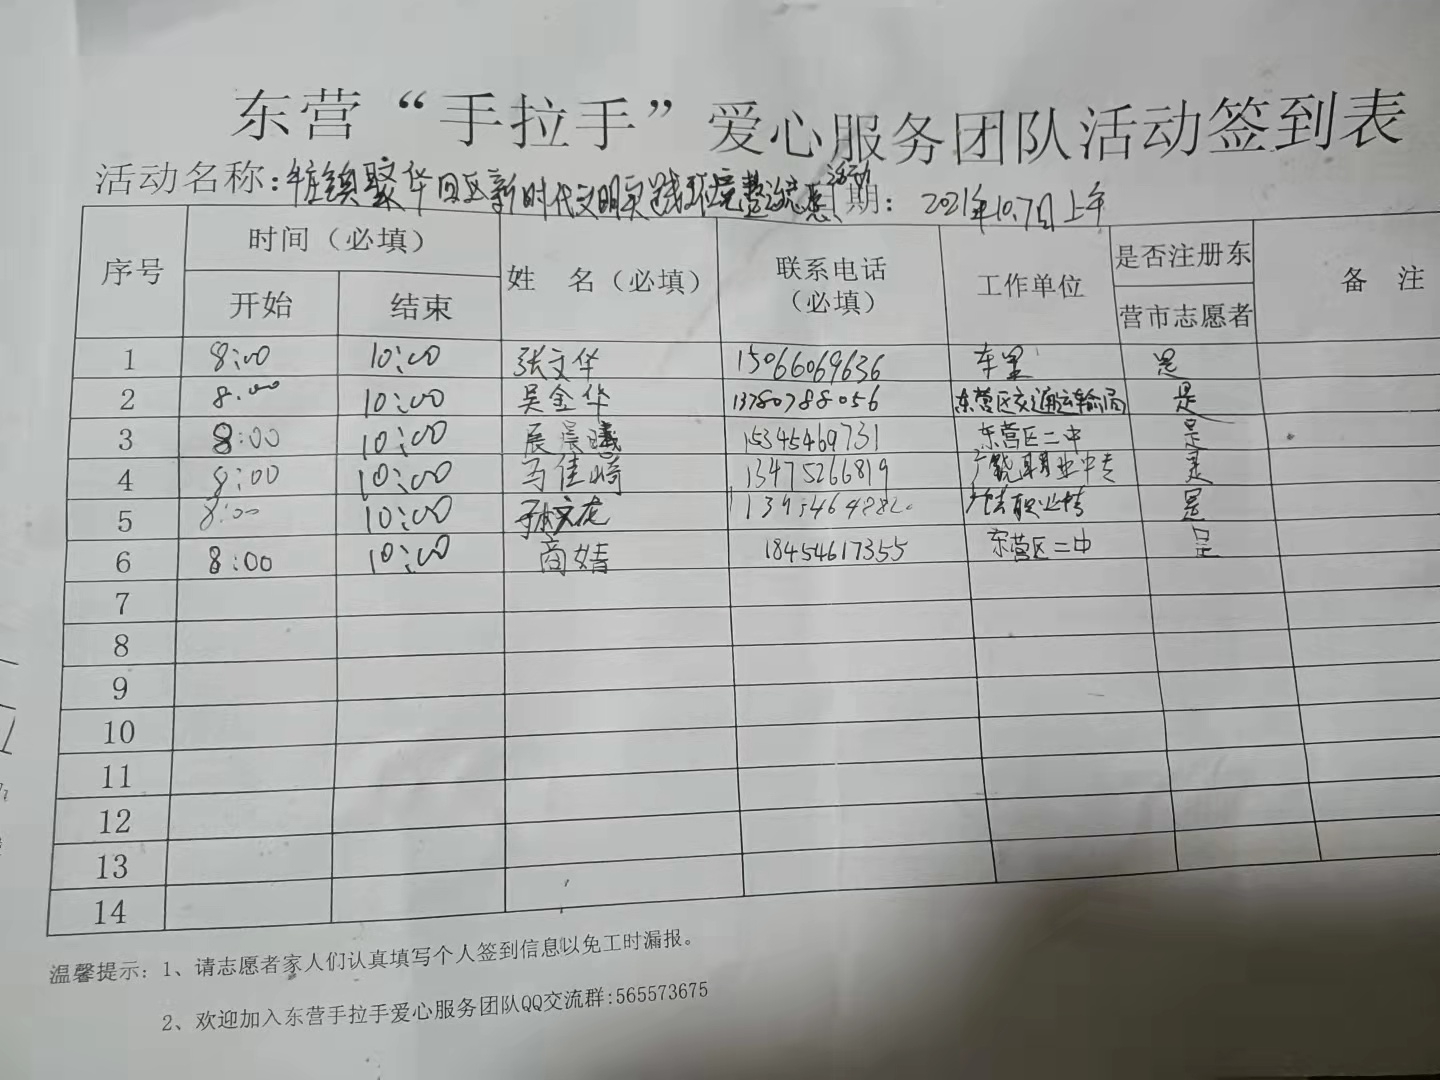 东营“手拉手”爱心服务团队活动签到表
活动名称：牛庄镇聚华园区新时代文明实践环境整治志愿活动 日期： 2021年10.7日上午
序号 时间（必填） 姓 名（必填） 联系电话（必填） 工作单位 是否注册东营市志愿者 备 注
开始 结束
1 8:00 10:00 张文华 15066069636 车里 是
2 8:00 10:00 吴金华 13780788056 东营区交通运输局 是
3 8:00 10:00 展晨曦 15345469731 东营区二中 是
4 8:00 10:00 马佳崎 13475266819 广饶县职业中专 是
5 8:00 10:00 孙文龙 是
6 8:00 10:00 商婧 18454617355 东营区二中 是
7
8
9
10
11
12
13
14
温馨提示：1、请志愿者家人们认真填写个人签到信息以免工时漏报。
2、欢迎加入东营手拉手爱心服务团队QQ交流群:565573675